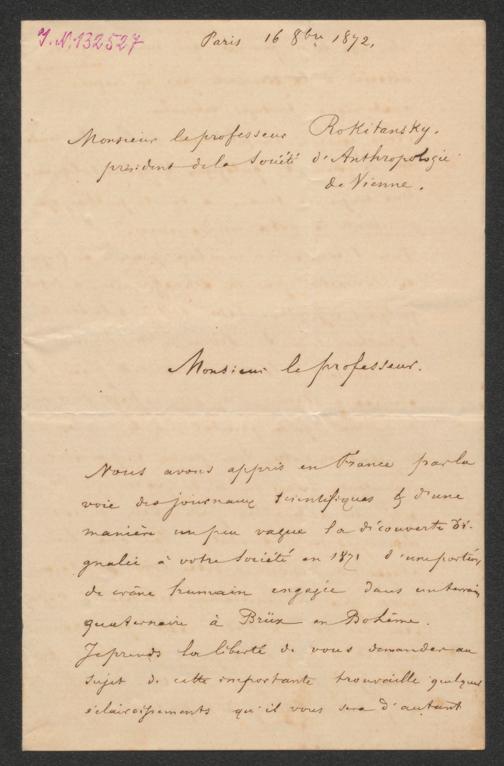 I.N. 132527
Paris 16 8bre 1872.
Monsieur le professeur Rokitansky.
président de la Société d'Anthropologie
de Vienne.
Monsieur le professeur.
Nous avons appris en France par la
voie des journaux scientifiques & d'une
manière un peu vague la découverte si-
gnalée à votre Société en 1871 d'une portion
de crâne humain engagée dans un terrain
quaternaire à Brüx en Bohême.
Je prends la liberté de vous demander au
sujet de cette importante trouvaille quelques
éclaircissements qu'il vous sera d'autant